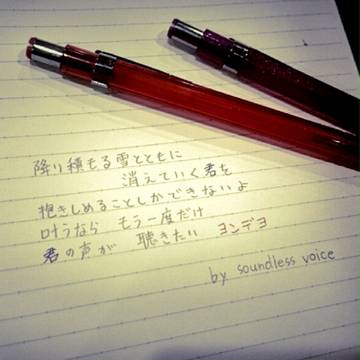 降り積もる雪とともに
消えていく君を
抱きしめることしかできないよ
叶うなら もう一度だけ
君の声が 聴きたい ヨンデヨ
by soundless voice